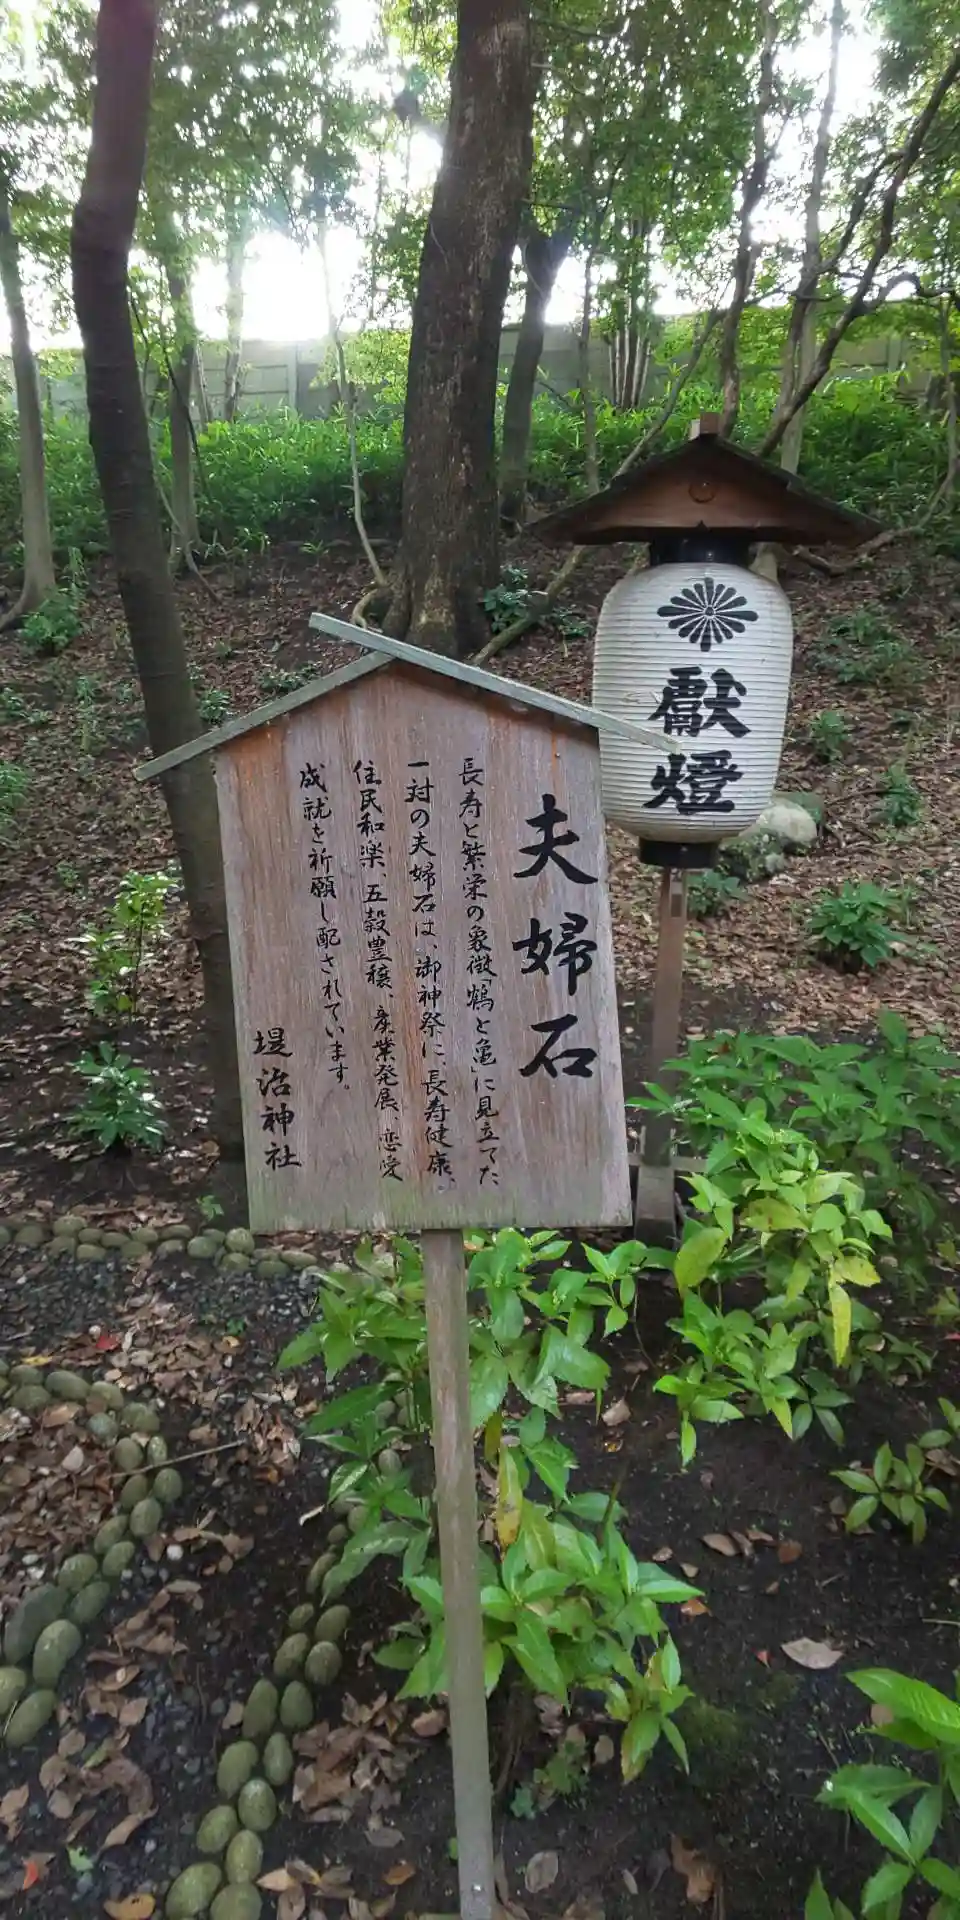 夫婦石
長寿と繁栄の象徴「鶴と亀」に見立てた
一対の夫婦石は、御神祭に、長寿健康、
住民和楽、五穀豊穣、産業発展、恋愛
成就を祈願し配されています。
堤治神社
献燈